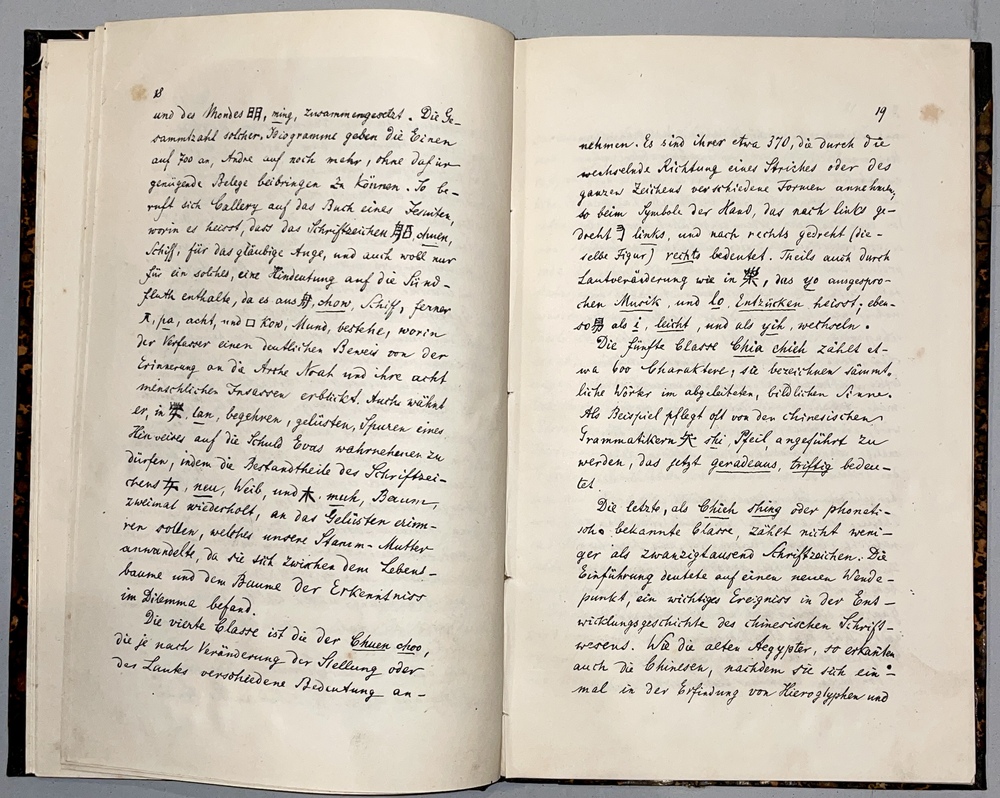 18
und des Mondes 明, ming, zusammengesetzt. Die Ge-
sammtzahl solcher Ideogramme geben die Einen
auf 700 an, Andre auf noch mehr, ohne dafür
genügende Belege beibringen zu können. So be-
ruft sich Callery auf das Buch eines Jesuiten,
worin es heisst, dass das Schriftzeichen 船, chuen,
Schiff, für das gläubige Auge, und auch wohl nur
für ein solches, eine Hindeutung auf die Sünd-
fluth enthalte, da es aus 舟, chow, Schiff, ferner
八, pa, acht, und 口 kow, Mund, bestehe, worin
der Verfasser einen deutlichen Beweis von der
Erinnerung an die Arche Noat und ihre acht
menschlichen Insassen erblickt. Auch wähnt
er, in 婪, lan, begehren, gelüsten, Spuren eines
Hinweises auf die Schuld Evas wahrnehmen zu
dürfen, indem die Bestandtheile des Schriftzei-
chens 女, neu, Weib, und 木, muh, Baum,
zweimal wiederholt, an das Gelüsten erinn-
ren sollen, welches unsere Stamm-Mutter
anwandelte, da sie sich zwischen dem Lebens-
baume und dem Baume der Erkenntniss
im Dilemma befand.
Die vierte Classe ist die der Chuen choo,
die je nach Veränderung der Stellung oder
des Lauts verschiedene Bedeutung an-
19
nehmen. Es sind ihrer etwa 370, die durch die
wechselnde Richtung eines Striches oder des
ganzen Zeichens verschiedene Formen annehmen,
so beim Symbole der Hand, das nach links ge-
dreht links, und nach rechts gedreht (die-
selbe Figur) rechts bedeutet. Theils auch durch
Lautveränderung wie in 樂, das yo ausgespro-
chen Musik, und lo, Entzücken heisst; eben-
so 易 als i, leicht, und als yih, wechseln.
Die fünfte Classe Chia chieh zählt et-
wa 600 Charaktere; sie bezeichnen sämmt-
liche Wörter im abgeleiteten, bildlichen Sinne.
Als Beispiel pflegt oft von den chinesischen
Grammatikern 矢 shi, Pfeil, angeführt zu
werden, das jetzt geradeaus, triftig bedeu-
tet.
Die letzte, als Chieh shing oder phoneti-
sche bekannte Classe, zählt nicht weni-
ger als zwanzigtausend Schriftzeichen. Die
Einführung deutete auf einen neuen Wende-
punkt, ein wichtiges Ereigniss in der Ent-
wicklungsgeschichte des chinesischen Schrift-
wesens. Wie die alten Aegypter, so erkannten
auch die Chinesen, nachdem sie sich ein-
mal in der Erfindung von Hieroglyphen und